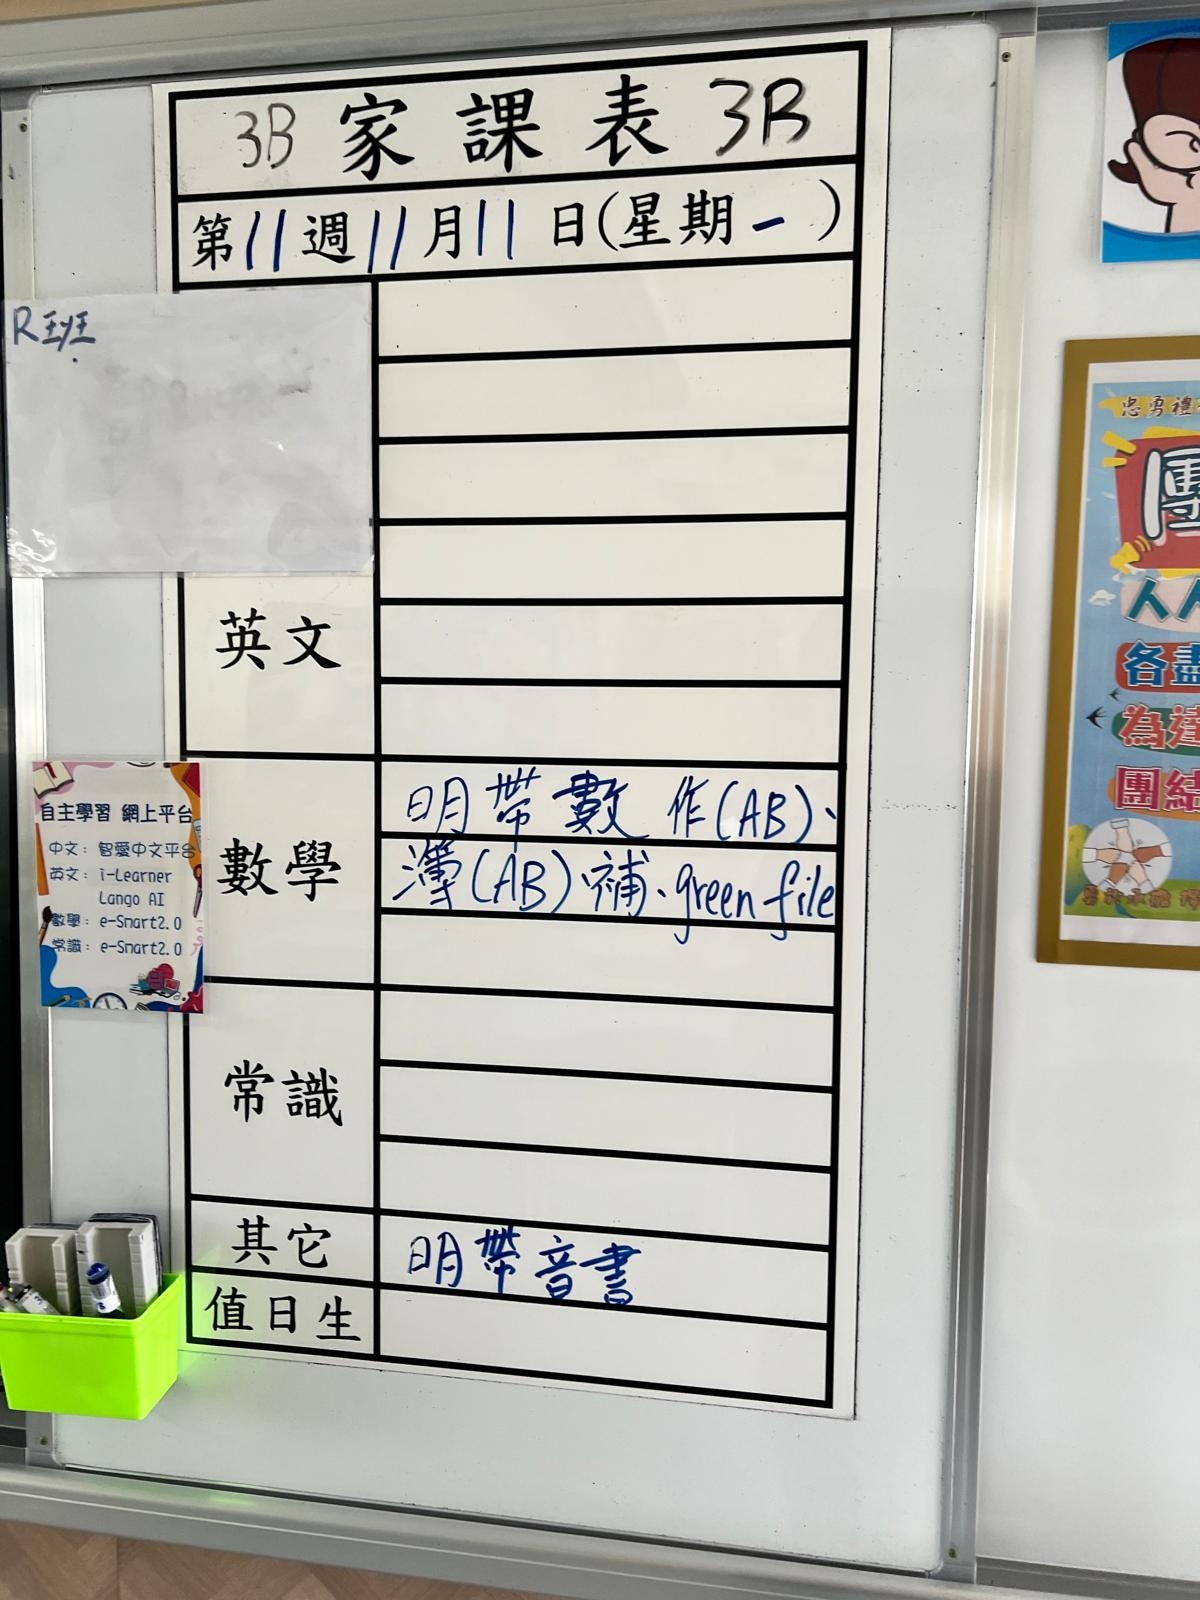 3B 家課表 3B
第11週11月11日(星期一)
R班
英文
數學
明帶數作(AB)、
簿(AB)、補、green file
常識
其它
明帶音書
值日生
自主學習 網上平台
中文：智愛中文平台
英文：i-Learner
Lango AI
數學：e-Smart2.0
常識：e-Smart2.0
忠勇禮
團
人人
各盡
為達
團結